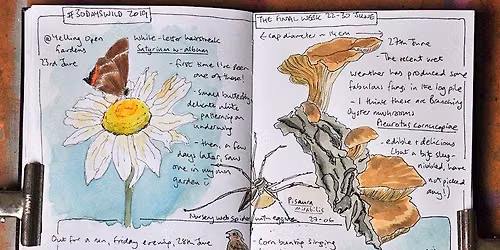 #30DAYSWILD 2019
@Melling Open
Gardens
23rd June
White-letter hairstreak
Satyrium w-album
- first time I've seen
one of these!
- small butterfly,
delicate white
patterning on
underwing
- then, a few
days later, saw
one in my own
garden
Nursery web spider with eggsac
Pisaura
mirabilis
27-06
Out for a run, Friday evening, 28th June
THE FINAL WEEK 22-30 JUNE
cap diameter ~ 14cm
27th June
- The recent wet
weather has produced some
fabulous fungi in the log pile
- I think these are Branching
Oyster mushrooms
Pleurotus cornucopiae
- edible + delicious
(but a bit slug-
nibbled, have
not picked
any!)
- Corn bunting singing